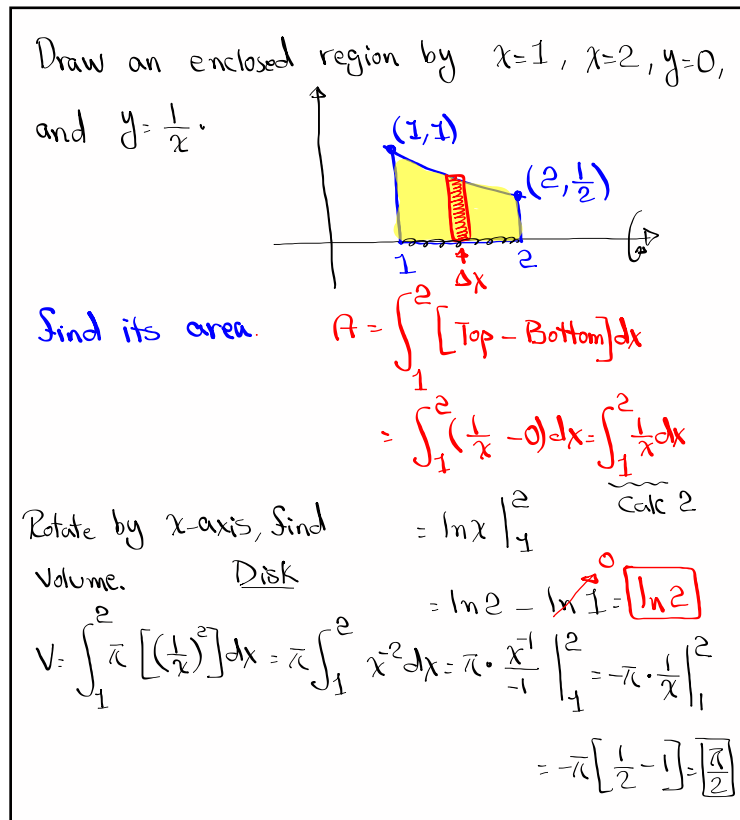 Draw an enclosed region by x=1, x=2, y=0,
and y=1/x.
(1,1)
(2,1/2)
1 2
Δx
find its area. A = ∫₁² [Top - Bottom]dx
= ∫₁² (1/x - 0)dx = ∫₁² 1/x dx
Calc 2
Rotate by x-axis, find = ln x |₁²
Volume. Disk
= ln2 - ln1 = ln2
0
V= ∫₁² π [(1/x)²]dx = π ∫₁² x⁻² dx = π · x⁻¹/-1 |₁² = -π · 1/x |₁²
= -π[1/2 - 1] = π/2